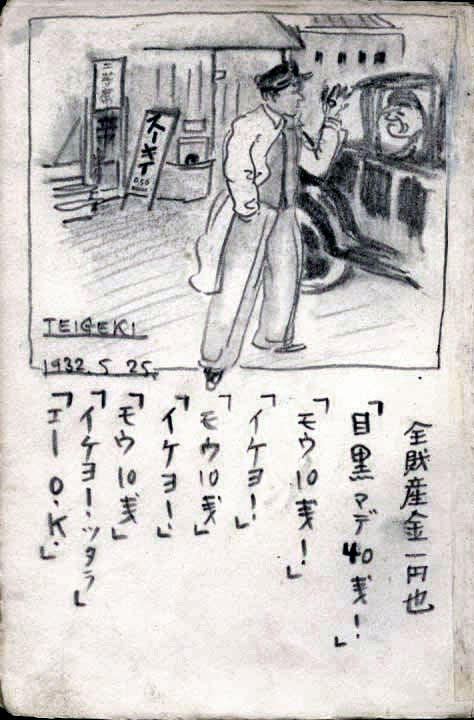 TEIGEKI
1932. 5 25.
全財産金一円也
「目黒マデ40銭!」
「モウ10銭!」
「イケヨ!」
「モウ10銭」
「イケヨ!」
「モウ10銭」
「イケヨ!ッタラ」
「エーO.K.」